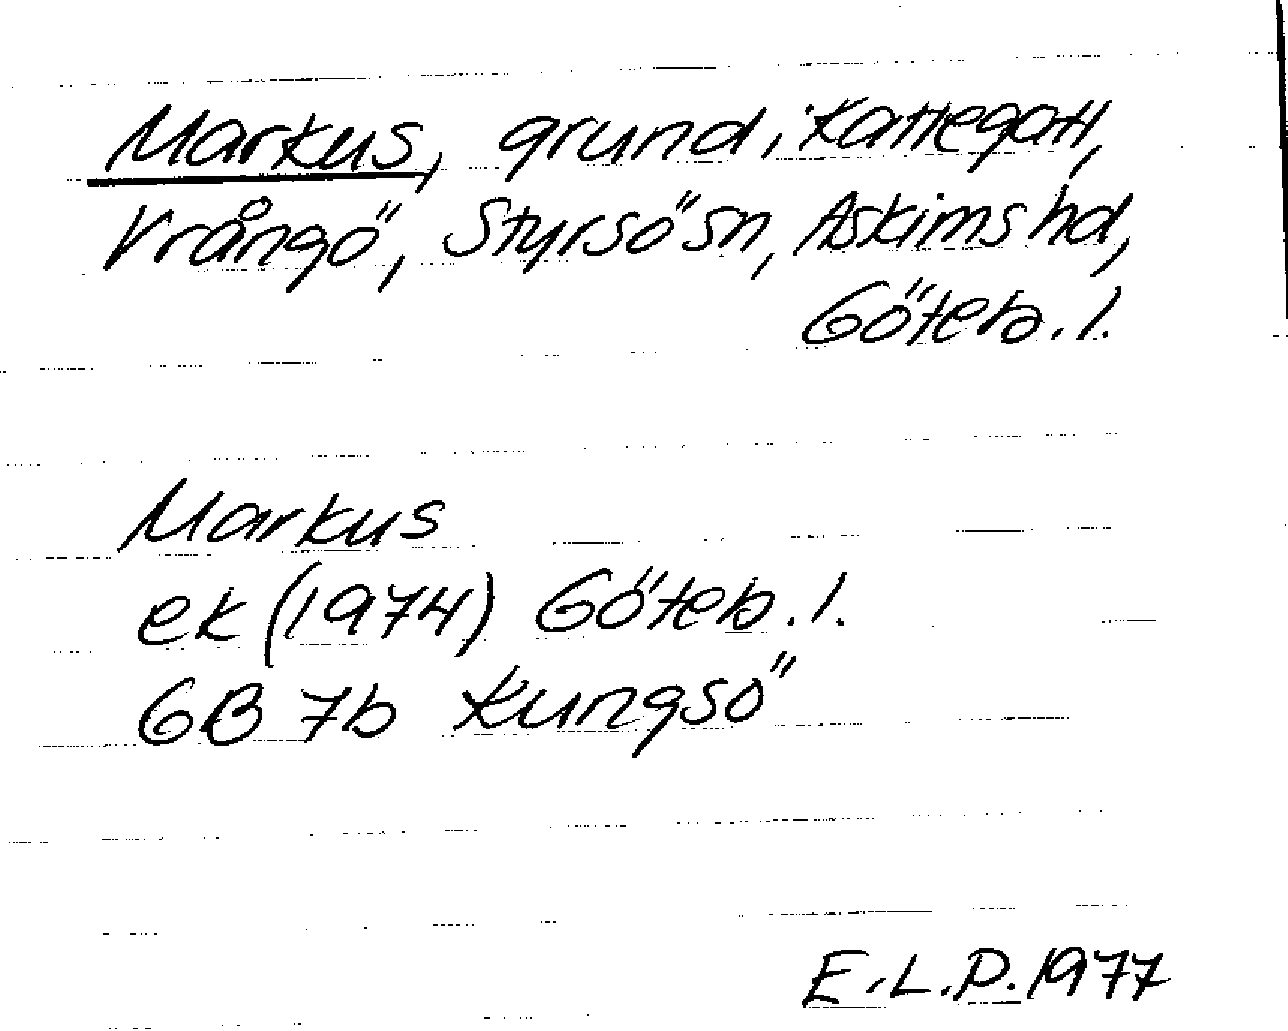 Markus, grund i Kattegatt,
Vrångö, Styrsö sn, Askims hd,
Göteb. l.
Markus
ek (1974) Göteb. l.
6B 7b Kungsö
E.L.P. 1977